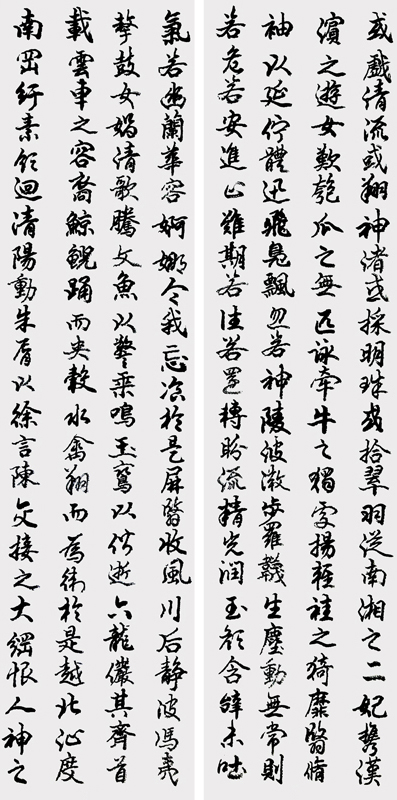 或戲清流或翔神渚或採明珠或拾翠羽從南湘之二妃攜漢
濱之遊女歎匏瓜之無匹詠牽牛之獨處揚輕袿之猗靡翳脩
袖以延佇體迅飛鳧飄忽若神陵波微步羅韈生塵動無常則
若危若安進止難期若往若還轉盼流精光潤玉顏含辭未吐
氣若幽蘭華容婀娜令我忘飡於是屏翳收風川后靜波馮夷
擊鼓女媧清歌騰文魚以警乘鳴玉鸞以偕逝六龍儼其齊首
載雲車之容裔鯨鯢踊而夾轂水禽翔而為衛於是越北沚度
南岡紆素領迴清陽動朱脣以徐言陳交接之大綱恨人神之